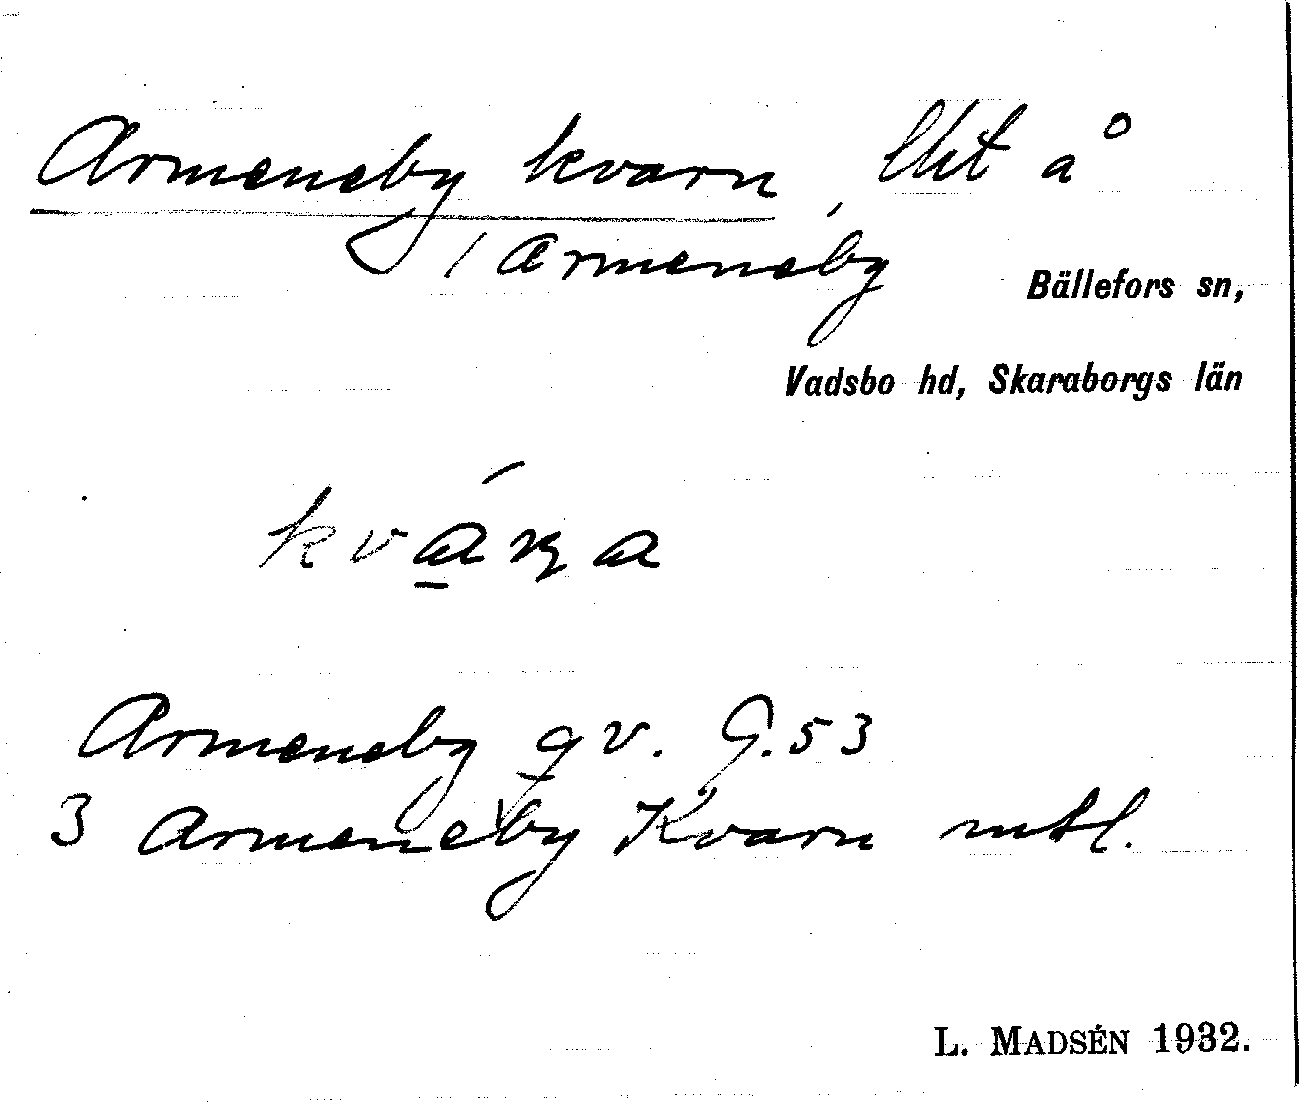 Armeneby kvarn, lht å
1 Armeneby
Bällefors sn,
Vadsbo hd, Skaraborgs län
kvána
Armeneby qv. G. 53
3 Armeneby Kvarn mtl.
L. MADSÉN 1932.